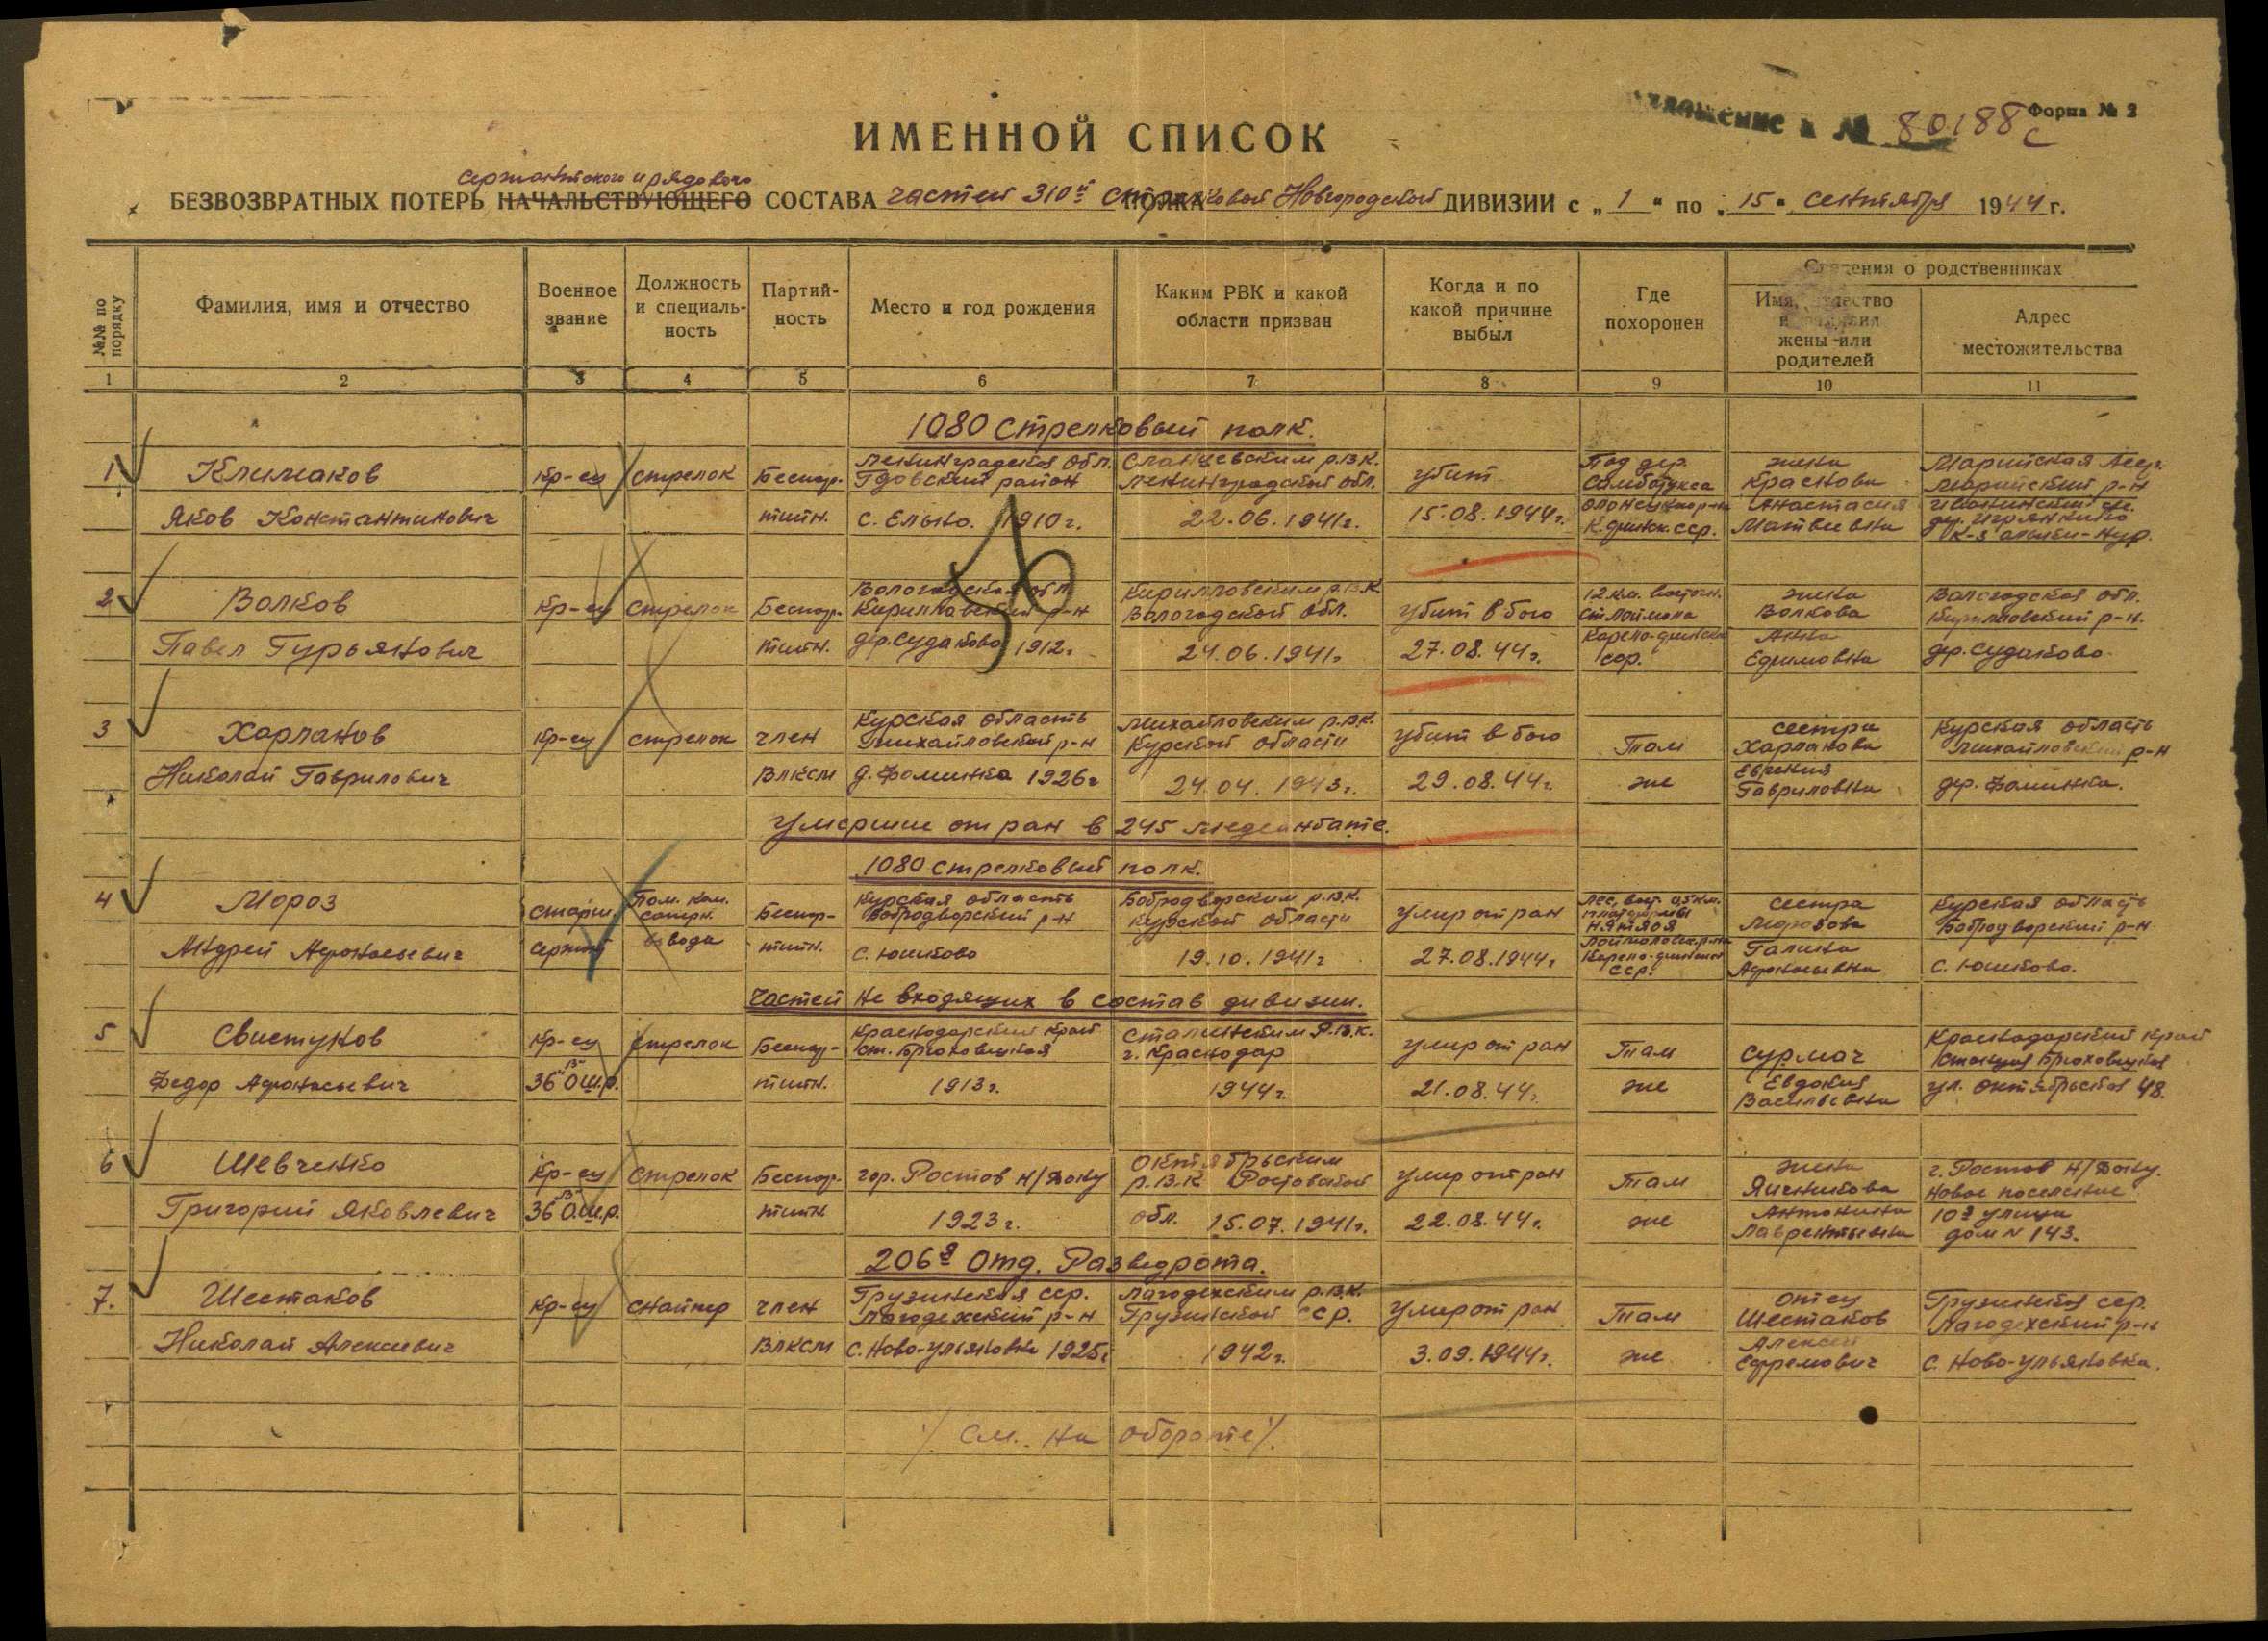 Приложение к № 80188с
Форма № 2
ИМЕННОЙ СПИСОК
сержантского и рядового
БЕЗВОЗВРАТНЫХ ПОТЕРЬ НАЧАЛЬСТВУЮЩЕГО СОСТАВА частей 310й стрелковой Новгородской ДИВИЗИИ с „1“ по „15“ сентября 1944 г.
№№ по порядку
Фамилия, имя и отчество
Военное звание
Должность и специальность
Партийность
Место и год рождения
Каким РВК и какой области призван
Когда и по какой причине выбыл
Где похоронен
Сведения о родственниках
Имя, отчество и фамилия жены или родителей
Адрес местожительства
1 2 3 4 5 6 7 8 9 10 11
1080 стрелковый полк.
1 Климаков Яков Константинович
кр-ец
стрелок
Беспартийн.
Ленинградская обл. Гдовский район с. Ельно. 1910 г.
Сланцевским р.в.к. Ленинградской обл. 22.06.1941г.
убит 15.08.1944г.
Под дер. Самбатукса
жена Краснова Анастасия Матвеевна
Марийская Асср.
2 Волков Павел Гурьянович
кр-ец
стрелок
Беспартийн.
Вологодская обл. Кирилловский р-н дер. Судаково 1912г.
Кирилловским р.в.к. Вологодской обл. 24.06.1941г.
убит в бою 27.08.44г.
12 км. восточн. ст. Лоймола Карело-финская сср.
жена Волкова Анна Ефимовна
Вологодская обл. Кирилловский р-н. дер. Судаково.
3 Харланов Николай Гаврилович
кр-ец
стрелок
член ВЛКСМ
Курская область Михайловский р-н д. Фоминка 1926г
Михайловским р.в.к. Курской области 24.04.1943г.
убит в бою 29.08.44г.
Там же
сестра Харланова Гавриловна
Курская область Михайловский р-н дер. Фоминка.
Умершие от ран в 245 медсанбате.
1080 стрелковый полк.
4 Мороз Андрей Афонасьевич
старш. сержант
Пом. ком. взвода
Беспартийн.
Курская область Бобродворский р-н с. Юшково
Бобродворским р.в.к. Курской области 19.10.1941г
умер от ран 27.08.1944г
Карело-финская ССР.
сестра Морозова Галина Афонасьевна
Курская область Бобродворский р-н с. Юшково.
Частей не входящих в состав дивизии.
5 Свистунов Федор Афонасьевич
кр-ец 36 О.Ш.Р.
стрелок
Беспартийн.
Краснодарский край ст. Брюховецкая 1913г.
Сталинским р.в.к. г. Краснодар 1944г.
умер от ран 21.08.44г.
Там же
Сурмач Евдокия Васильевна
Краснодарский край станция Брюховецкая ул. Октябрьская 48.
6 Шевченко Григорий Яковлевич
кр-ец 36 О.Ш.Р.
стрелок
Беспартийн
гор. Ростов н/Дону 1923г.
Октябрьским р.в.к Ростовской обл. 15.07.1941г.
умер от ран 22.08.44г.
Там же
жена Яичникова Антонина Лаврентьевна
г. Ростов н/Дону. Новое поселение 10я улица дом N 143.
206я Отд. Разведрота.
7. Шестаков Николай Алексеевич
кр-ец
снайпер
член ВЛКСМ
Грузинская сср. Лагодехский р-н с. Ново-Ульяновка 1925г
Лагодехским р.в.к. Грузинской сср. 1942г.
умер от ран 3.09.1944г.
Там же
отец Шестаков Алексей Ефремович
Грузинская сср. Лагодехский р-н с. Ново-Ульяновка.
/. См. на обороте /.